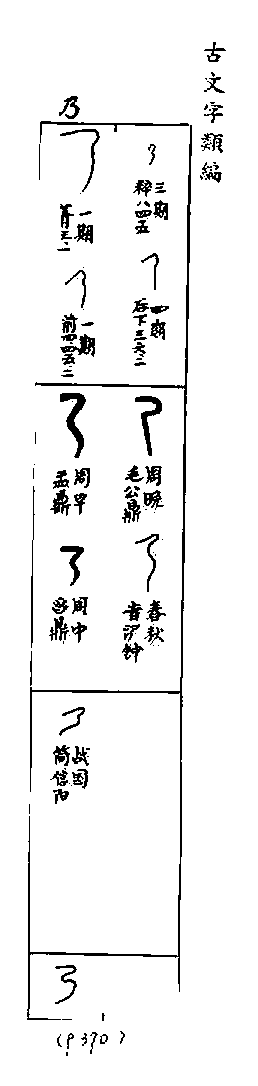 古文字類編
乃
一期
菁三.一
三期
粹八四五
一期
前四.四五.二
四期
后下三六.三
周早
盂鼎
周晚
毛公鼎
周中
鼎
春秋
者汈钟
战国
信阳简
(P370)